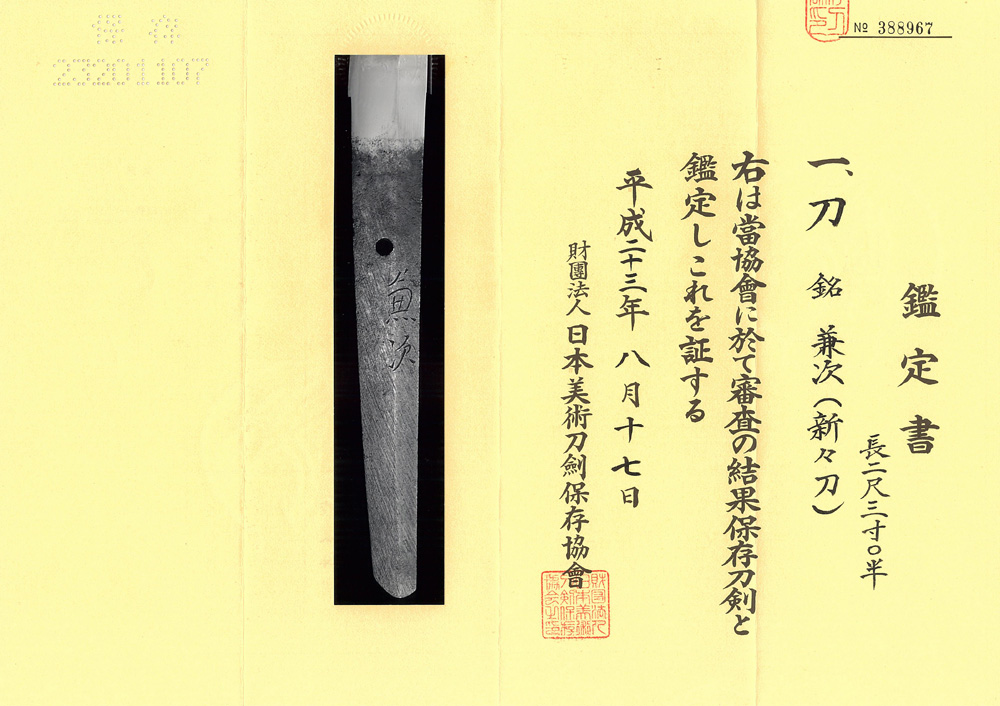 鑑定書
長二尺三寸〇半
一、刀 銘 兼次(新々刀)
右は當協會に於て審査の結果保存刀剣と
鑑定しこれを証する
平成二十三年八月十七日
財團法人日本美術刀劍保存協會
№ 388967
兼次
保存
23201107